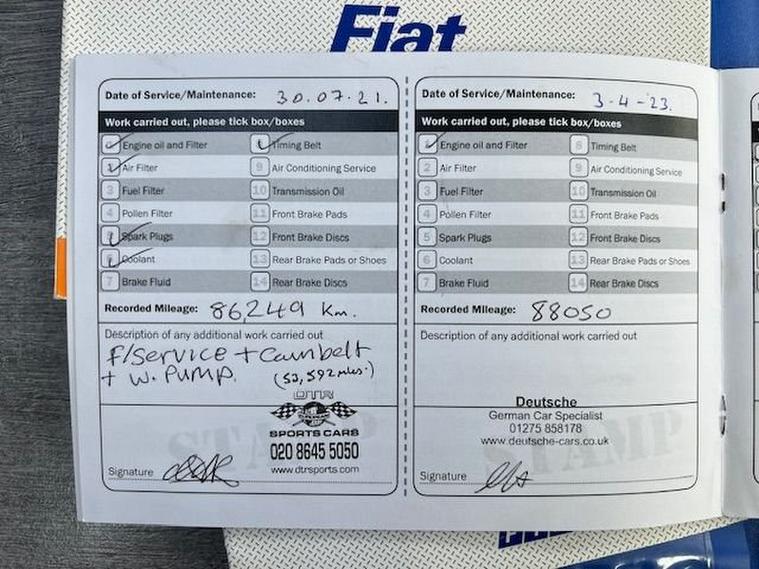 Fiat
Date of Service/Maintenance: 30.07.21.
Work carried out, please tick box/boxes
Engine oil and Filter Timing Belt
Air Filter 9 Air Conditioning Service
3 Fuel Filter 10 Transmission Oil
4 Pollen Filter 11 Front Brake Pads
5 Spark Plugs 12 Front Brake Discs
6 Coolant 13 Rear Brake Pads or Shoes
7 Brake Fluid 14 Rear Brake Discs
Recorded Mileage: 86,249 Km.
Description of any additional work carried out
F/Service + Cambelt
+ W. Pump. (53,592 miles.)
DTR
SPORTS CARS
020 8645 5050
www.dtrsports.com
STAMP
Signature
Date of Service/Maintenance: 3-4-23.
Work carried out, please tick box/boxes
Engine oil and Filter 8 Timing Belt
2 Air Filter 9 Air Conditioning Service
3 Fuel Filter 10 Transmission Oil
4 Pollen Filter 11 Front Brake Pads
5 Spark Plugs 12 Front Brake Discs
6 Coolant 13 Rear Brake Pads or Shoes
7 Brake Fluid 14 Rear Brake Discs
Recorded Mileage: 88050
Description of any additional work carried out
Deutsche
German Car Specialist
01275 858178
www.deutsche-cars.co.uk
STAMP
Signature